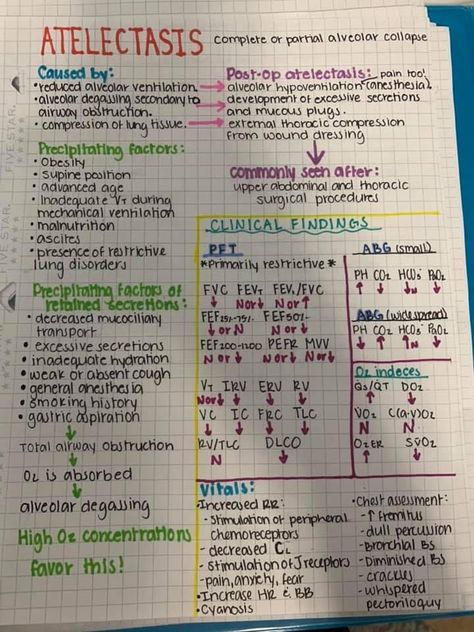 ATELECTASIS complete or partial alveolar collapse
Caused by:
• reduced alveolar ventilation.
• alveolar degassing secondary to
airway obstruction.
• compression of lung tissue.
Post-op atelectasis: pain too!
alveolar hypoventilation (anesthesia).
development of excessive secretions
and mucous plugs.
external thoracic compression
from wound dressing
commonly seen after:
upper abdominal and thoracic
surgical procedures
Precipitating factors:
• Obesity
• Supine position
• advanced age
• Inadequate VT during
mechanical ventilation
• malnutrition
• ascites
• presence of restrictive
lung disorders
Precipitating factors of
retained secretions:
• decreased mucociliary
transport
• excessive secretions
• inadequate hydration
• weak or absent cough
• general anesthesia
• smoking history
• gastric aspiration
↓
Total airway obstruction
↓
O2 is absorbed
↓
alveolar degassing
High O2 concentrations
favor this!
CLINICAL FINDINGS
PFT
*Primarily restrictive*
FVC FEVT FEV1/FVC
↓ Nor↓ Nor↑
FEF25%-75% FEF50%
↓or N Nor↓
FEF200-1200 PEFR MVV
N or ↓ Nor↓ Nor↓
VT IRV ERV RV
Nor↓ ↓ ↓ ↓
VC IC FRC TLC
↓ ↓ ↓ ↓
RV/TLC DLCO
N ↓
ABG (small)
PH CO2 HCO3 PaO2
↑ ↓ ↓N ↓
ABG (widespread)
PH CO2 HCO3 PaO2
↓ ↑ ↑N ↓
O2 indeces
Qs/QT DO2
↑ ↓
VO2 C(a-v)O2
N N
O2ER SVO2
↑ ↓
Vitals:
• Increased RR:
- Stimulation of peripheral
chemoreceptors
- decreased CL
- Stimulation of J receptors
- pain, anxiety, fear
• Increase HR & BB
• Cyanosis
• Chest assessment:
- ↑ fremitus
- dull percussion
- Bronchial BS
- Diminished BS
- crackles
- whispered
pectoriloquy
FIVE STAR